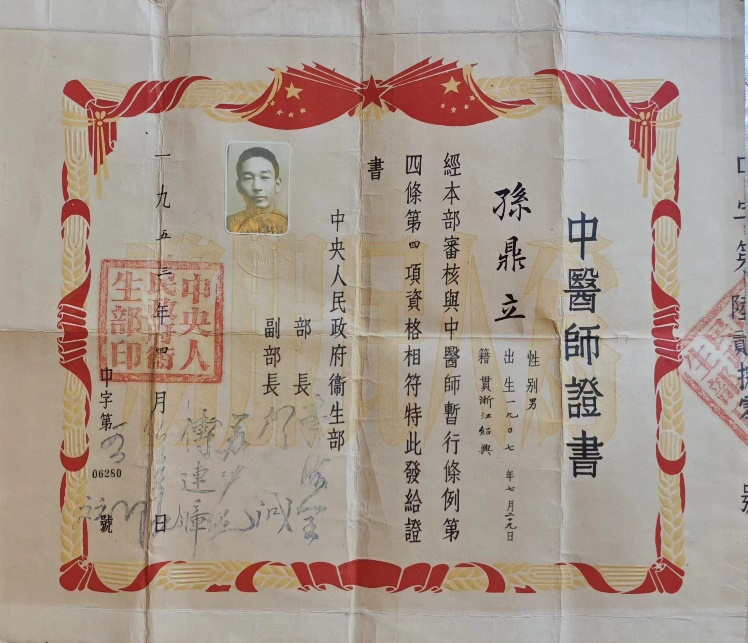 中字第陸貳捌零號
中醫師證書
孫鼎立
性別男
出生一九〇七年七月二九日
籍貫浙江紹興
經本部審核與中醫師暫行條例第
四條第四項資格相符特此發給證
書
中央人民政府衞生部
部長
副部長
傅連暲
一九五三年四月 日
中央人民政府衞生部印
中字第
06280
號